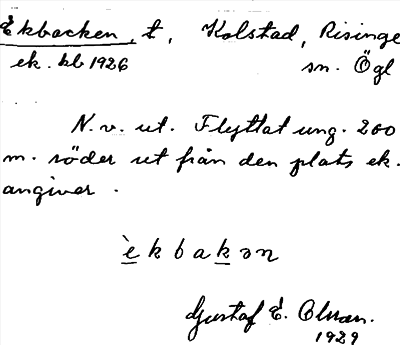 Ekbacken, t, Kolstad, Risinge
ek. kb 1926 sn. Ögl
N. v. ut. Flyttat ung. 200
m. söder ut från den plats ek.
angiver.
èkbakən
Gustaf E. Olman.
1929